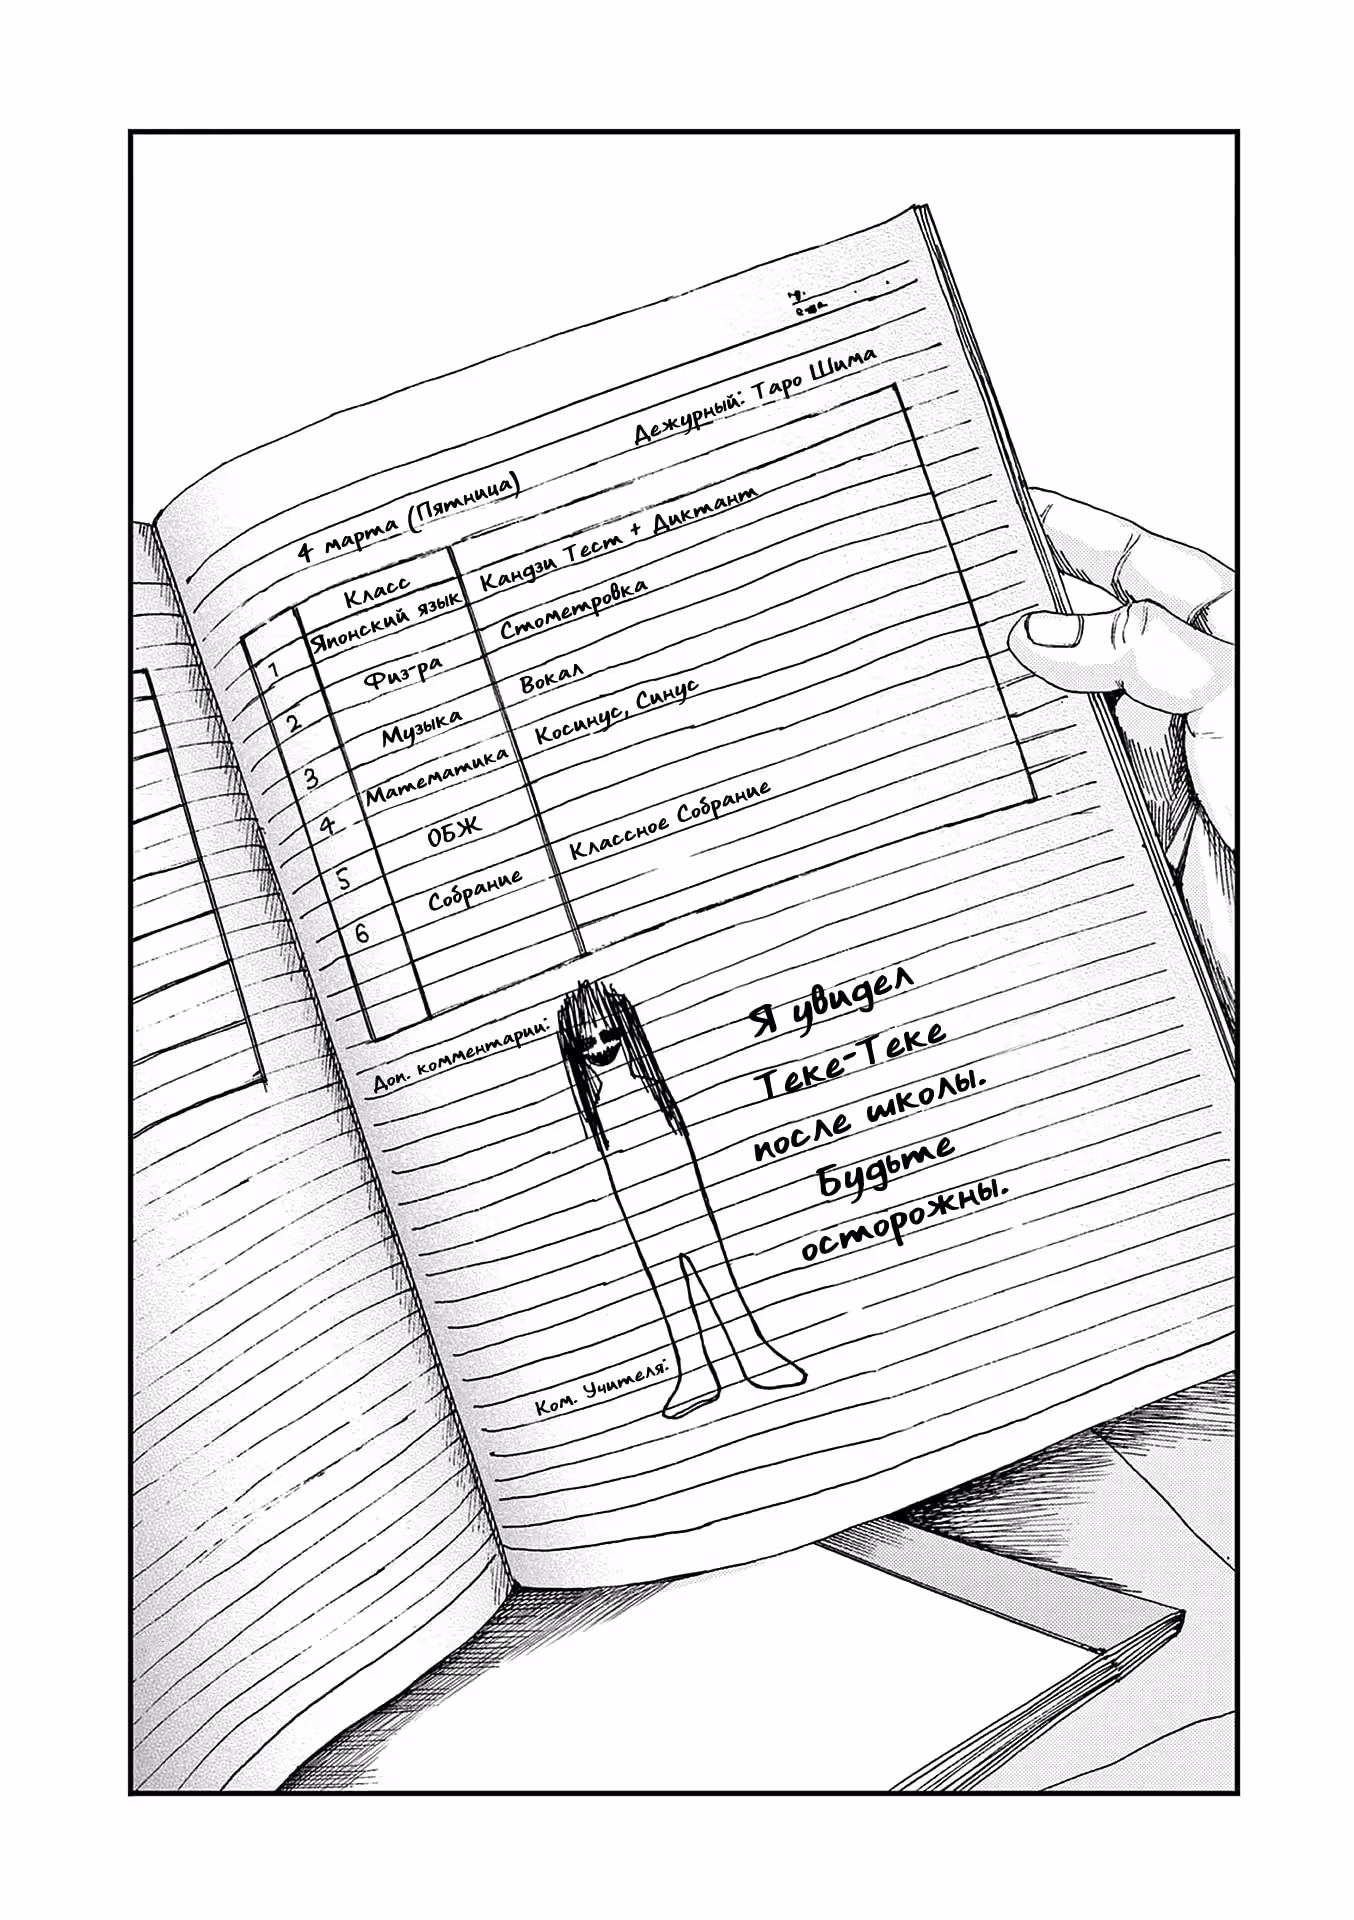 Дежурный: Таро Шима
4 марта (Пятница)
Класс
1 Японский язык Кандзи Тест + Диктант
2 Физ-ра Стометровка
3 Музыка Вокал
4 Математика Косинус, Синус
5 ОБЖ
6 Собрание Классное Собрание
Доп. комментарии:
Я увидел
Теке-Теке
после школы.
Будьте
осторожны.
Ком. Учителя: